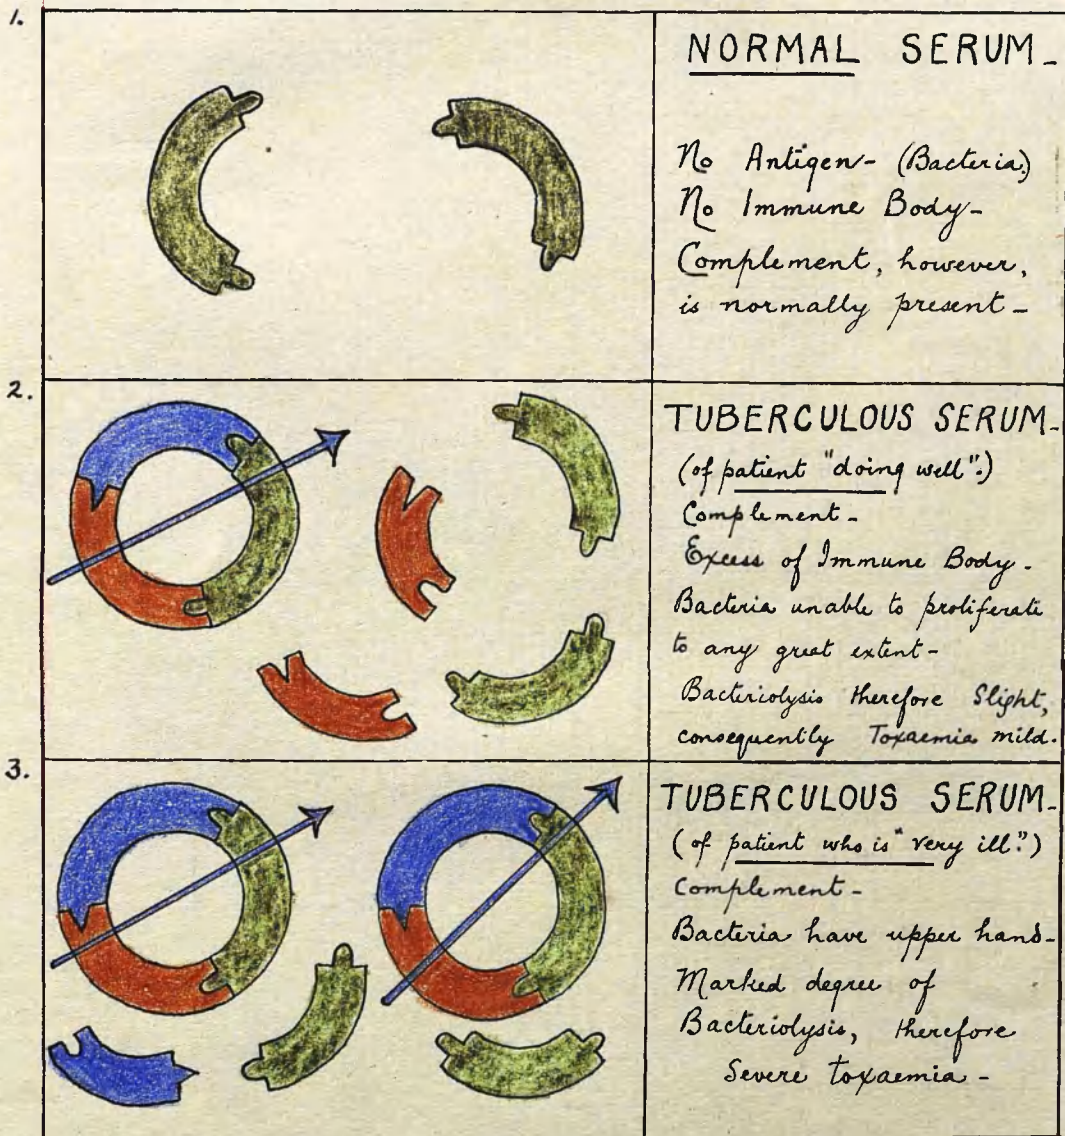 1.
NORMAL SERUM-
No Antigen- (Bacteria)
No Immune Body-
Complement, however,
is normally present-
2.
TUBERCULOUS SERUM-
(of patient "doing well".)
Complement-
Excess of Immune Body.
Bacteria unable to proliferate
to any great extent-
Bacteriolysis therefore Slight,
consequently Toxaemia mild.
3.
TUBERCULOUS SERUM-
(of patient who is "very ill".)
Complement-
Bacteria have upper hand-
Marked degree of
Bacteriolysis, therefore
Severe toxaemia-